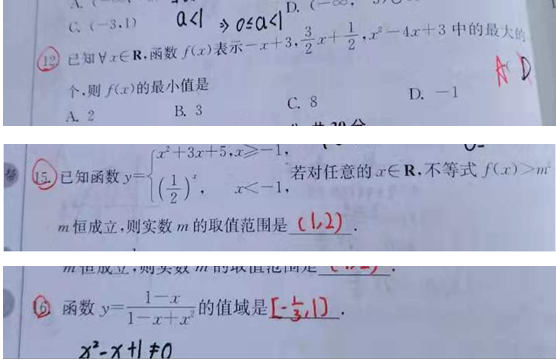 C. (-3,1) a<1 ⇒ 0≤a<1 D. (-∞,
12 已知∀x∈R,函数 f(x)表示-x+3, 3/2 x+1/2, x²-4x+3 中的最大的
个,则 f(x)的最小值是 A D
A. 2 B. 3 C. 8 D. -1
15. 已知函数 y={x²+3x+5,x≥-1, (1/2)^x, x<-1, 若对任意的 x∈R,不等式 f(x)>m
m 恒成立,则实数 m 的取值范围是 (1,2) .
m 恒成立,则实数 m 的取值范围是
16. 函数 y= (1-x)/(1-x+x²) 的值域是 [-1/3,1] .
x²-x+1≠0